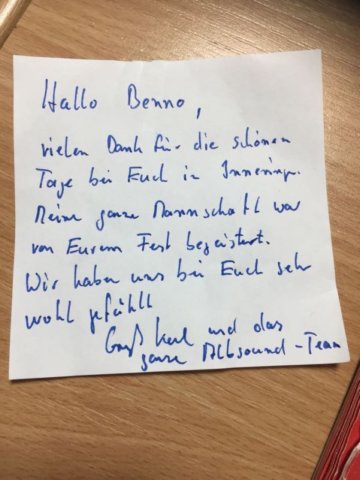 Hallo Benno,
vielen Dank für die schönen
Tage bei Euch in Inneringen.
Meine ganze Mannschaft war
von Eurem Fest begeistert.
Wir haben uns bei Euch sehr
wohl gefühlt
Gruß Karl und das
ganze Albsound-Team